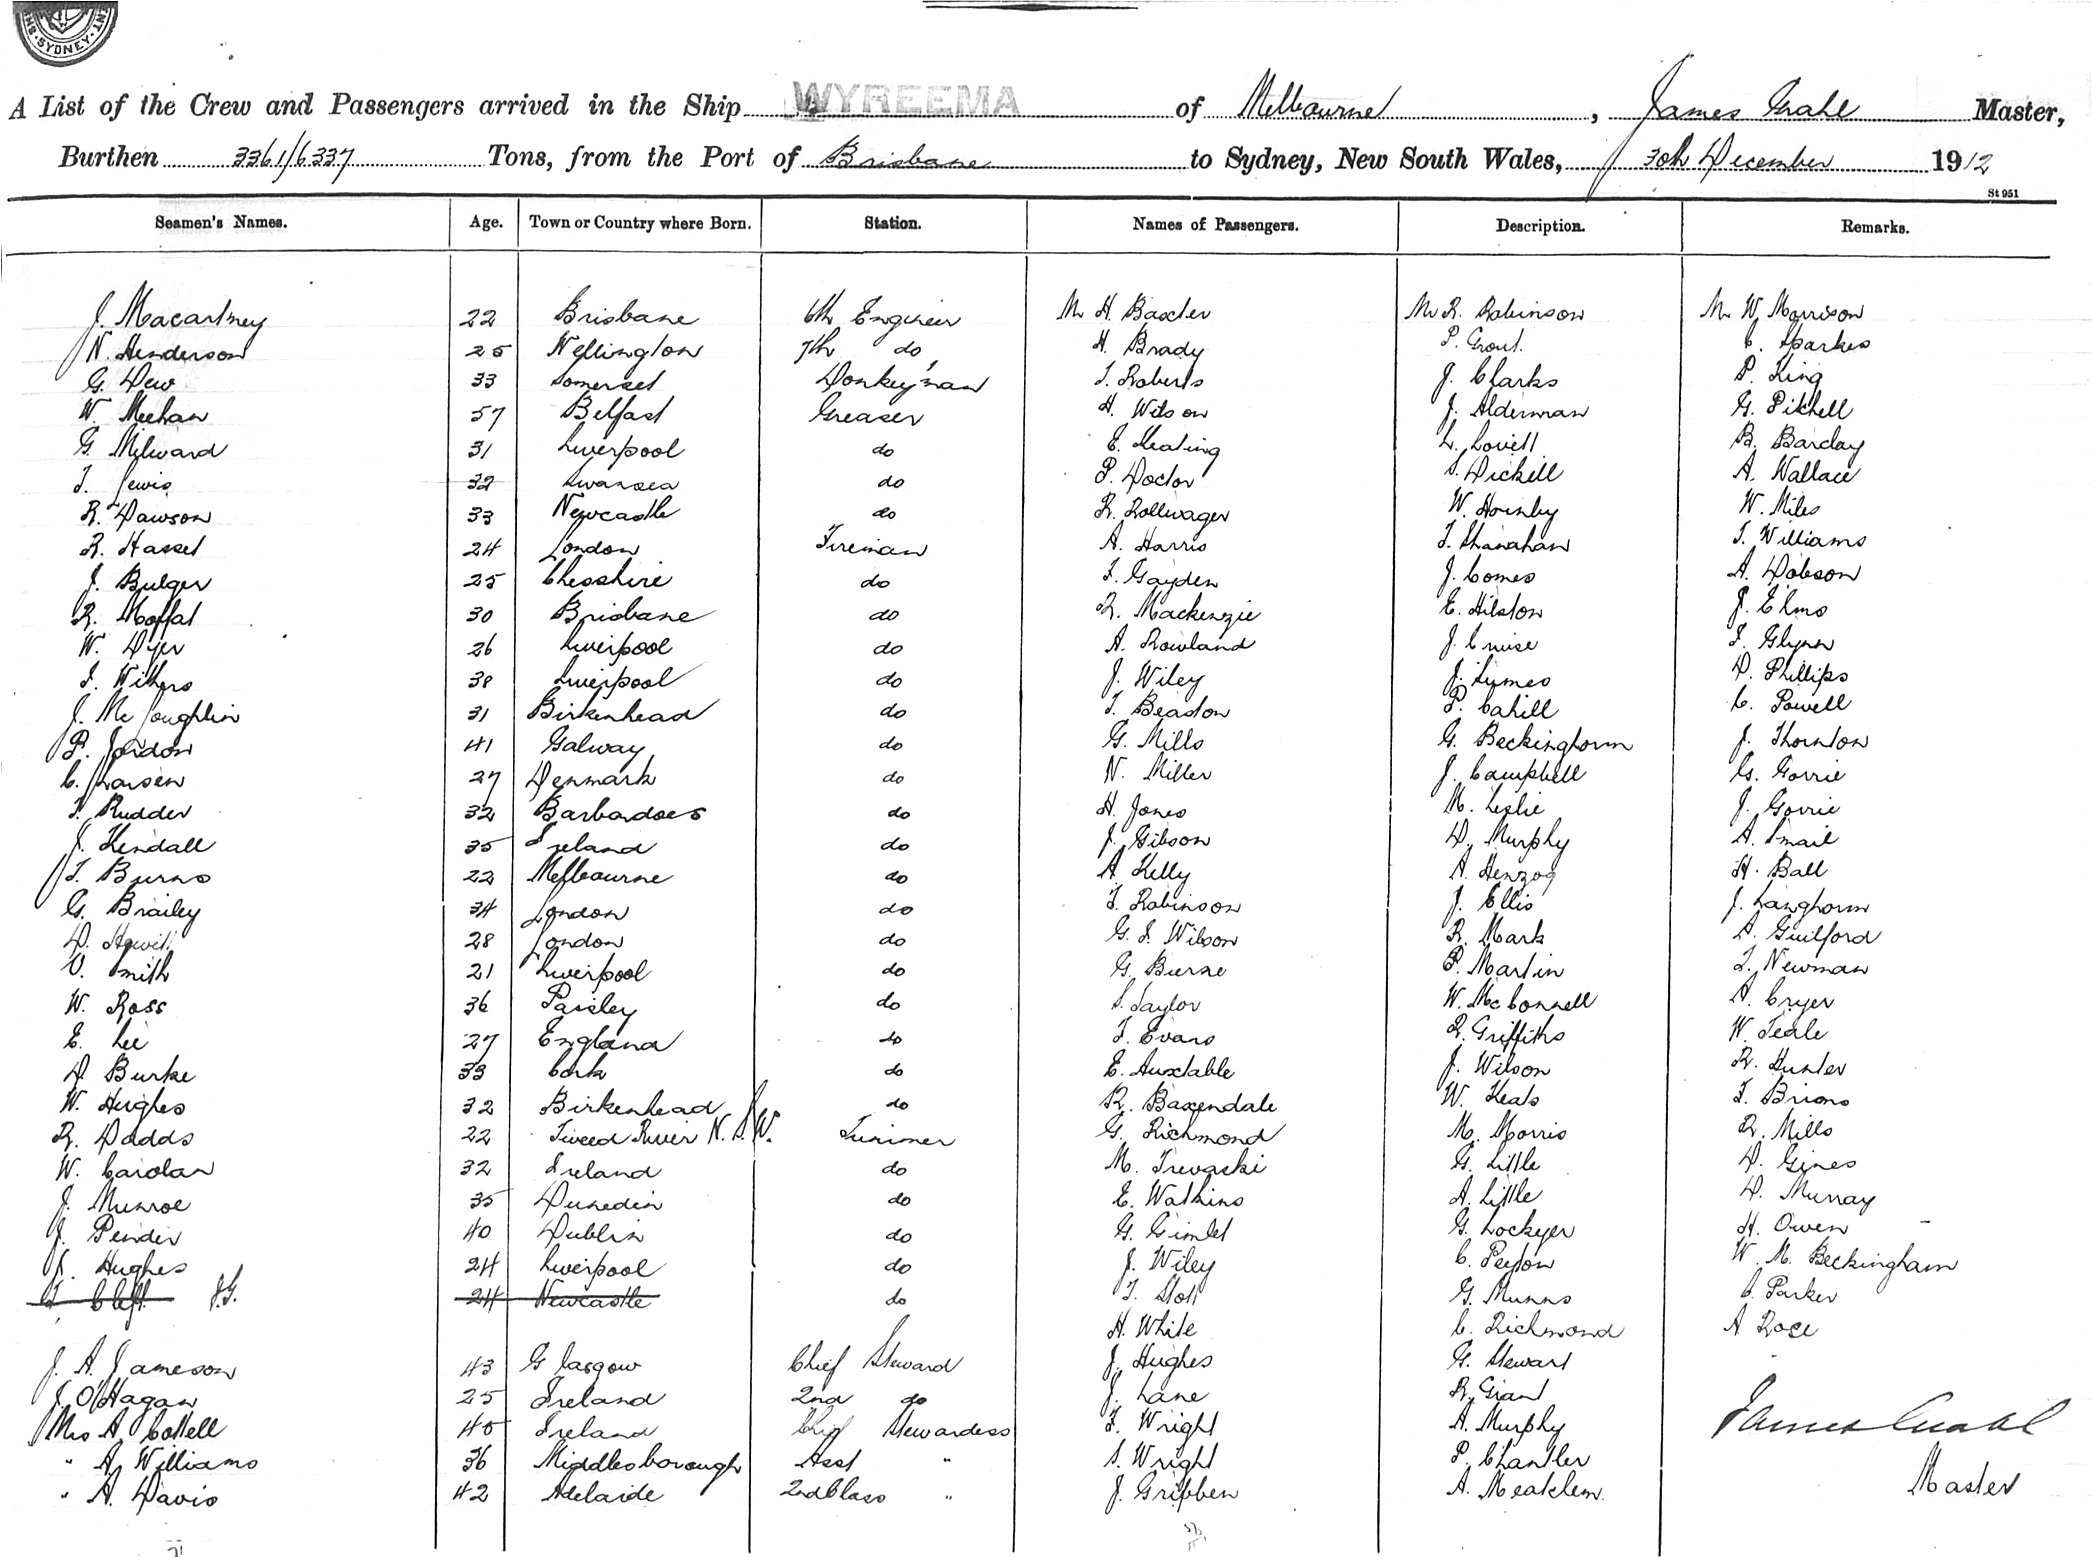 SYDNEY
A List of the Crew and Passengers arrived in the Ship WYREEMA of Melbourne, James Grahl Master,
Burthen 3361/6337 Tons, from the Port of Brisbane to Sydney, New South Wales, 30th December 1912
St 951
Seamen's Names. Age. Town or Country where Born. Station. Names of Passengers. Description. Remarks.
J. Macartney 22 Brisbane 6th Engineer Mr H. Baxter Mr R. Robinson Mr W. Morrison
N. Henderson 25 Wellington 7th do H. Brady P. Grout. C. Sparkes
G. Dew 33 Somerset Donkeyman T. Roberts J. Clarks P. King
W. Meehan 57 Belfast Greaser H. Wilson J. Alderman G. Pitchell
G. Milward 31 Liverpool do E. Keating L. Lovell B. Barclay
T. Lewis 32 Swansea do P. Doctor S. Dickell A. Wallace
R. Dawson 33 Newcastle do R. Rollwager W. Hornby W. Miles
R. Hassel 24 London Fireman A. Harris T. Shanahan T. Williams
J. Bulger 25 Chesshire do F. Gayden J. Comes A. Dobson
R. Moffat 30 Brisbane do R. Mackenzie E. Hilston J. Elms
W. Dyer 26 Liverpool do A. Rowland J. Cruise F. Glynn
F. Withers 38 Liverpool do J. Wiley J. Lymes D. Phillips
J. McLoughlin 31 Birkenhead do T. Beaston P. Cahill C. Powell
P. Jordon 41 Galway do G. Mills G. Beckinghorm J. Thornton
C. Larsen 27 Denmark do N. Miller J. Campbell G. Gorrie
T. Rudder 32 Barbadoes do H. Jones M. Leslie J. Gorrie
J. Kendall 35 Ireland do J. Gibson D. Murphy A. Smail
T. Burns 22 Melbourne do A. Kelly A. Henzog H. Ball
G. Brailey 34 London do T. Robinson J. Ellis J. Langhorm
D. Howitt 28 London do G. S. Wilson R. Mark A. Guilford
V. Smith 21 Liverpool do G. Burne P. Martin T. Newman
W. Ross 36 Paisley do S. Taylor W. McConnell A. Cryer
E. Lee 27 England do T. Evans R. Griffiths W. Teale
D Burke 33 Cork do E. Huxtable J. Wilson R. Hunter
W. Hughes 32 Birkenhead do R. Baxendale W. Keats T. Brions
R. Dadds 22 Tweed River N.S.W. Trimmer G. Richmond M. Morris R. Mills
W. Carolan 32 Ireland do M. Trevaski G. Little D. Gines
J. Munroe 35 Dunedin do E. Watkins A. Little D. Murray
J. Pender 40 Dublin do G. Gimlet G. Lockyer H. Owen
Hughes 24 Liverpool do J. Wiley C. Peyton W. M. Beckingham
Cleft J.G. 24 Newcastle do T. Stott G. Munns C. Parker
H. White C. Richmond A Rose
J. A. Jameson 43 Glasgow Chief Steward J. Hughes G. Stewart
J. O'Hagan 25 Ireland 2nd do J. Lane R. Grant
Mrs A. Cottell 45 Ireland Chief Stewardess F. Wright A. Murphy James Grahl
" A. Williams 36 Middlesborough Asst " S. Wright P. Chantler Master
" A. Davis 42 Adelaide 2nd Class " J. Gribben A. Meatclem.